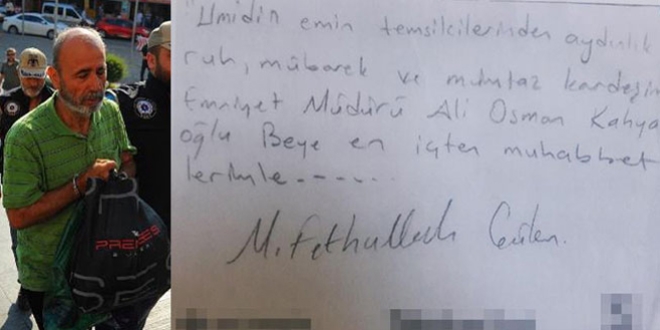 "Ümidin emin temsilcilerinden aydınlık
ruh, mübarek ve mümtaz kardeşim
Emniyet Müdürü Ali Osman Kahya
oğlu Beye en içten muhabbet
lerimle------
M. Fethullah Gülen.
PRENSES